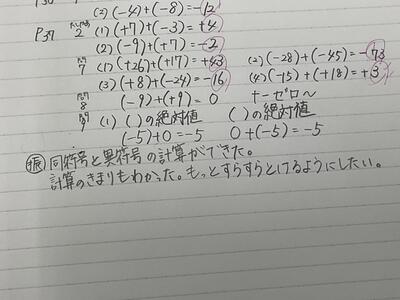 (2) (-4)+(-8)=-12
P37 (1) (+7)+(-3)=+4
(2) (-9)+(+7)=-2
問7 (1) (+26)+(+17)=+43 (2) (-28)+(-45)=-73
(3) (+8)+(-24)=-16 (4) (-15)+(+18)=+3
問8 (-9)+(+9)=0 +-ゼロ～
問9 (1) ( )の絶対値 ( )の絶対値
(-5)+0=-5 0+(-5)=-5
振 同符号と異符号の計算ができた。
計算のきまりもわかった。もっとすらすらとけるようにしたい。